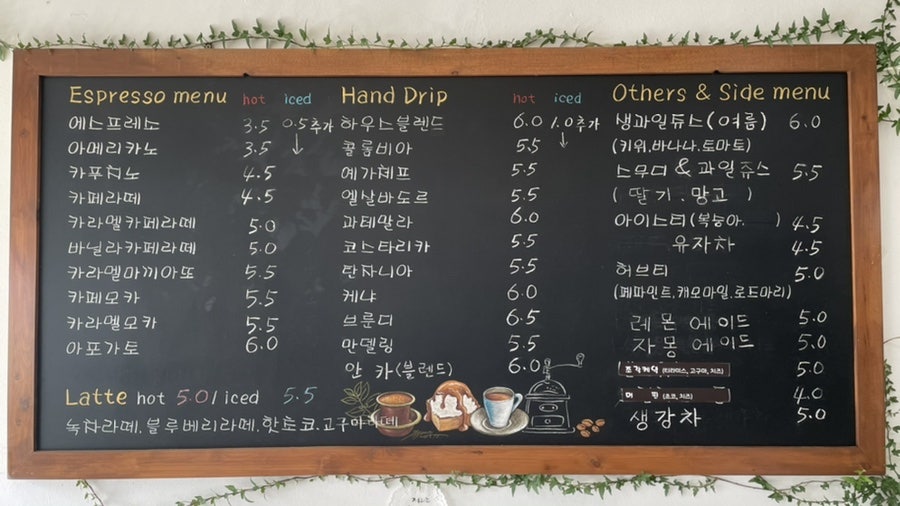 Espresso menu hot iced
에스프레소 3.5 0.5추가
아메리카노 3.5 ↓
카푸치노 4.5
카페라떼 4.5
카라멜카페라떼 5.0
바닐라카페라떼 5.0
카라멜마끼아또 5.5
카페모카 5.5
카라멜모카 5.5
아포가토 6.0
Latte hot 5.0 / iced 5.5
녹차라떼, 블루베리라떼, 핫초코, 고구마라떼
Hand Drip hot iced
하우스블렌드 6.0 1.0추가
콜롬비아 5.5 ↓
예가체프 5.5
엘살바도르 5.5
과테말라 6.0
코스타리카 5.5
탄자니아 5.5
케냐 6.0
브룬디 6.5
만델링 5.5
안 카(블렌드) 6.0
Others & Side menu
생과일쥬스(여름) 6.0
(키위,바나나,토마토)
스무디 & 과일쥬스 5.5
( 딸기 . 망고 )
아이스티(복숭아. ) 4.5
유자차 4.5
허브티 5.0
(페파민트,캐모마일,로드마리)
레몬에이드 5.0
자몽에이드 5.0
조각케익 (티라미스, 고구마, 치즈) 5.0
머 핀 (초코, 치즈) 4.0
생강차 5.0